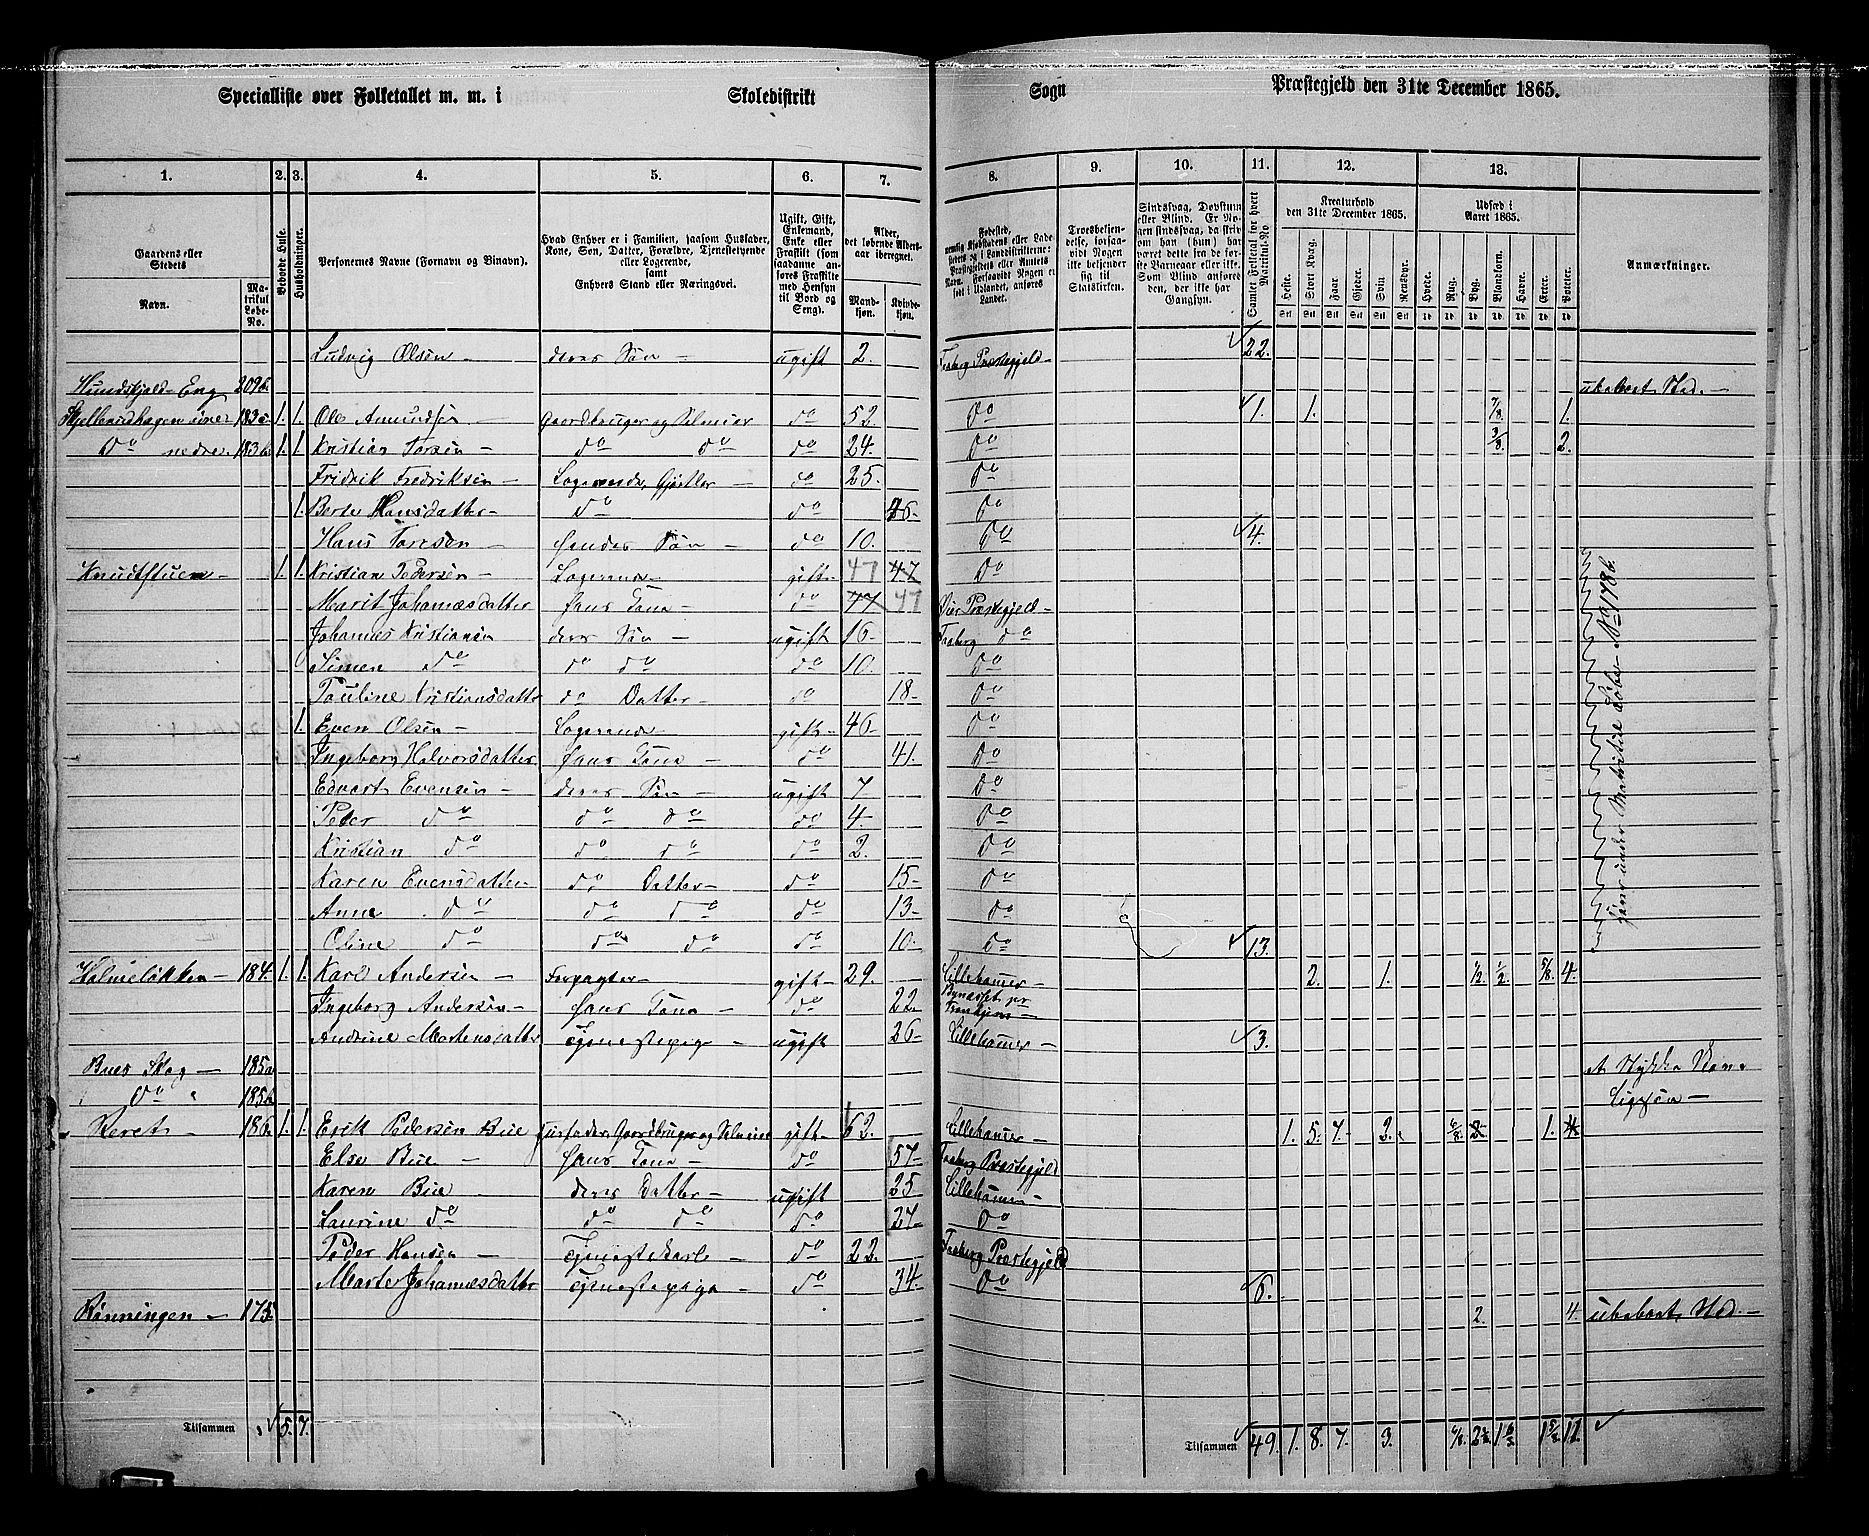 Specialliste over Folketallet m. m. i Skoledistrikt Sogn Præstegjeld den 31te December 1865.
1. 2. 3. 4. 5. 6. 7. 8. 9. 10. 11. 12. 13.
Gaardens eller Stedets Navn. Matrikul Løbe-No. Beboede Huse. Husholdninger. Personernes Navne (Fornavn og Binavn). Hvad Enhver er i Familien, saasom Husfader, Kone, Søn, Datter, Forældre, Tjenestetyende eller Logerende, samt Enhvers Stand eller Næringsvei. Ugift, Gift, Enkemand, Enke eller Fraskilt (som saadanne anføres Fraskilte med Hensyn til Bord og Seng). Alder, det løbende Alders-aar iberegnet. Mandkjøn. Kvindekjøn.
Troesbekjendelse, forsaavidt Nogen ikke bekjender sig til Statskirken. Samlet Folketal for hvert Matrikul-No. Kreaturhold den 31te December 1865. Udsæd i Aaret 1865. Anmærkninger.
Heste. Stort Kvæg. Faar. Gjeder. Svin. Rensdyr. Hvede. Rug. Byg. Blandkorn. Havre. Erter. Poteter.
Ludvig Olsen – deres Søn – ugift 2. Faaberg Præstegjeld – 22.
Hundskjold-Eng 209b. ubeboet Sted. –
1. 1. Ole Amundsen Gaardbruger og Selveier do 52. do 1. 1. 7/8 1.
do nedre 183b 1. 1. Kristian Torsen – do do do 24. do 3/8 2.
Fridrik Fredriksen – Logerende, do 25. do
1. Berte Hansdatter – do do do
Hans Toresen – hendes Søn – do 10. do 4.
Knudtstuen – 1. 1. Kristian Pedersen – Logerende – gift – 47 47 do
Marit Johannesdatter hans Kone – do 47 47 Øier Præstegjeld –
Johannes Kristiansen deres Søn – ugift 16 – Faaberg do
Simen do do do do 10. do
Pauline Kristiansdatter do Datter – do 18 – do
1. Even Olsen – Logerende – gift – 46 – do
Ingeborg Halvorsdatter hans Kone – do 41. do
Edvart Evensen – deres Søn – ugift 7 do
Peder do do do do 4 – do
Kristian do do do do 2. do
Karen Evensdatter do Datter – do 15 – do
Anne do do do do 13 – do
Oline do do do do 10 – do 13.
føres under Matrikul Løbe No 186.
Holmeløkken – 184. 1. 1. Karl Andersen – Forpagter – gift – 29. Lillehamer – 2. 1. 1/2 1/2 5/8 4.
Ingeborg Andersen – hans Kone – do 22 – Bynæsset pr Trondhjem –
Andrine Mortensdatter Tjenestepige – ugift 26 – Lillehamer – 3.
Bues Skog – 185a et Stykke Skov
do 185b
186. 1. 1. Erik Pedersen Bue Husfader, Gaardbruger og Selveier gift – 62. Lillehamer – 1. 5. 7 – 2. 6/8 2 1. 4
Else Bue – hans Kone – do 57 – Faaberg Præstegjeld
Karen Bue deres Datter – ugift 25 – Lillehamer –
Laurine do do do do 27 – do
Peder Hansen – Tjenestekarl – do 22. Faaberg Præstegjeld
Marte Johannesdatter Tjenestepige – do 34. do 6.
Rønningen – 175. 2. 4. ubeboet Sted. –
Tilsammen 5. 7. Tilsammen 49. 1. 8. 7. 3. 6/8. 1 5/8 11.